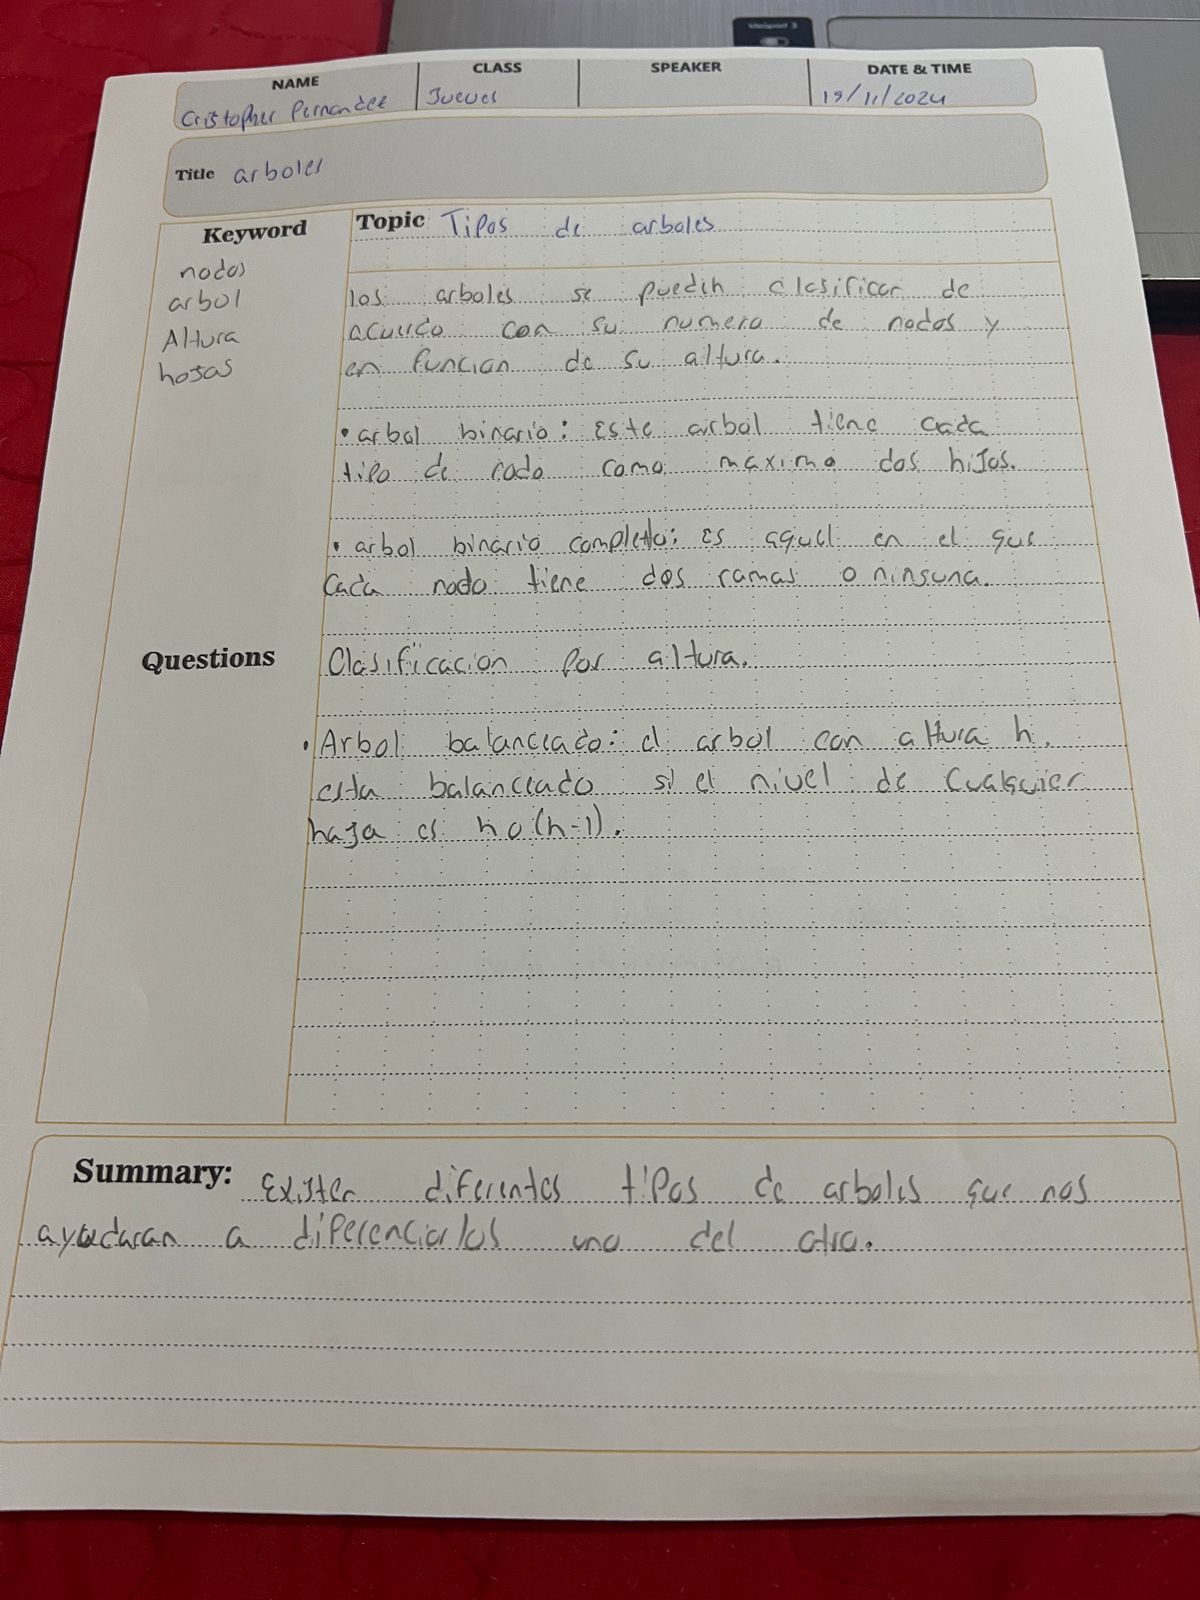 ideapad 3
NAME
CLASS
SPEAKER
DATE & TIME
Cristopher Fernandez
Jueves
19/11/2024
Title arboles
Keyword
nodos
arbol
Altura
hojas
Topic Tipos de arboles
los arboles se pueden clasificar de
acuerdo con su numero de nodos y
en funcion de su altura.
• arbol binario: Este arbol tiene cada
tipo de nodo como maximo dos hijos.
• arbol binario completo: es aquel en el que
Cada nodo tiene dos ramas o ninguna.
Questions
Clasificacion por altura.
• Arbol balanceado: el arbol con altura h,
esta balanceado si el nivel de cualquier
hoja es h o (h-1).
Summary: Existen diferentes tipos de arboles que nos
ayudaran a diferenciarlos uno del otro.